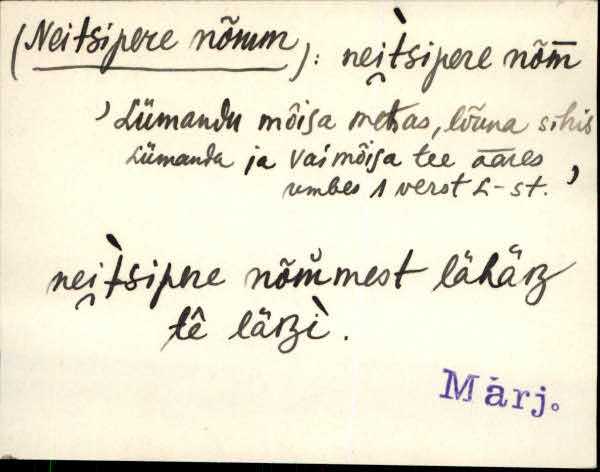 (Neitsipere nõmm): nei̯t̀sipere nõm̅
, Lümandu mõisa metsas, lõuna sihis
Lümandu ja Vaimõisa tee ääres
umbes 1 verst L-st. ,
nei̯t̀sipere nõm̆mest lähäʀʒ
tê läʀʒì.
Märj.